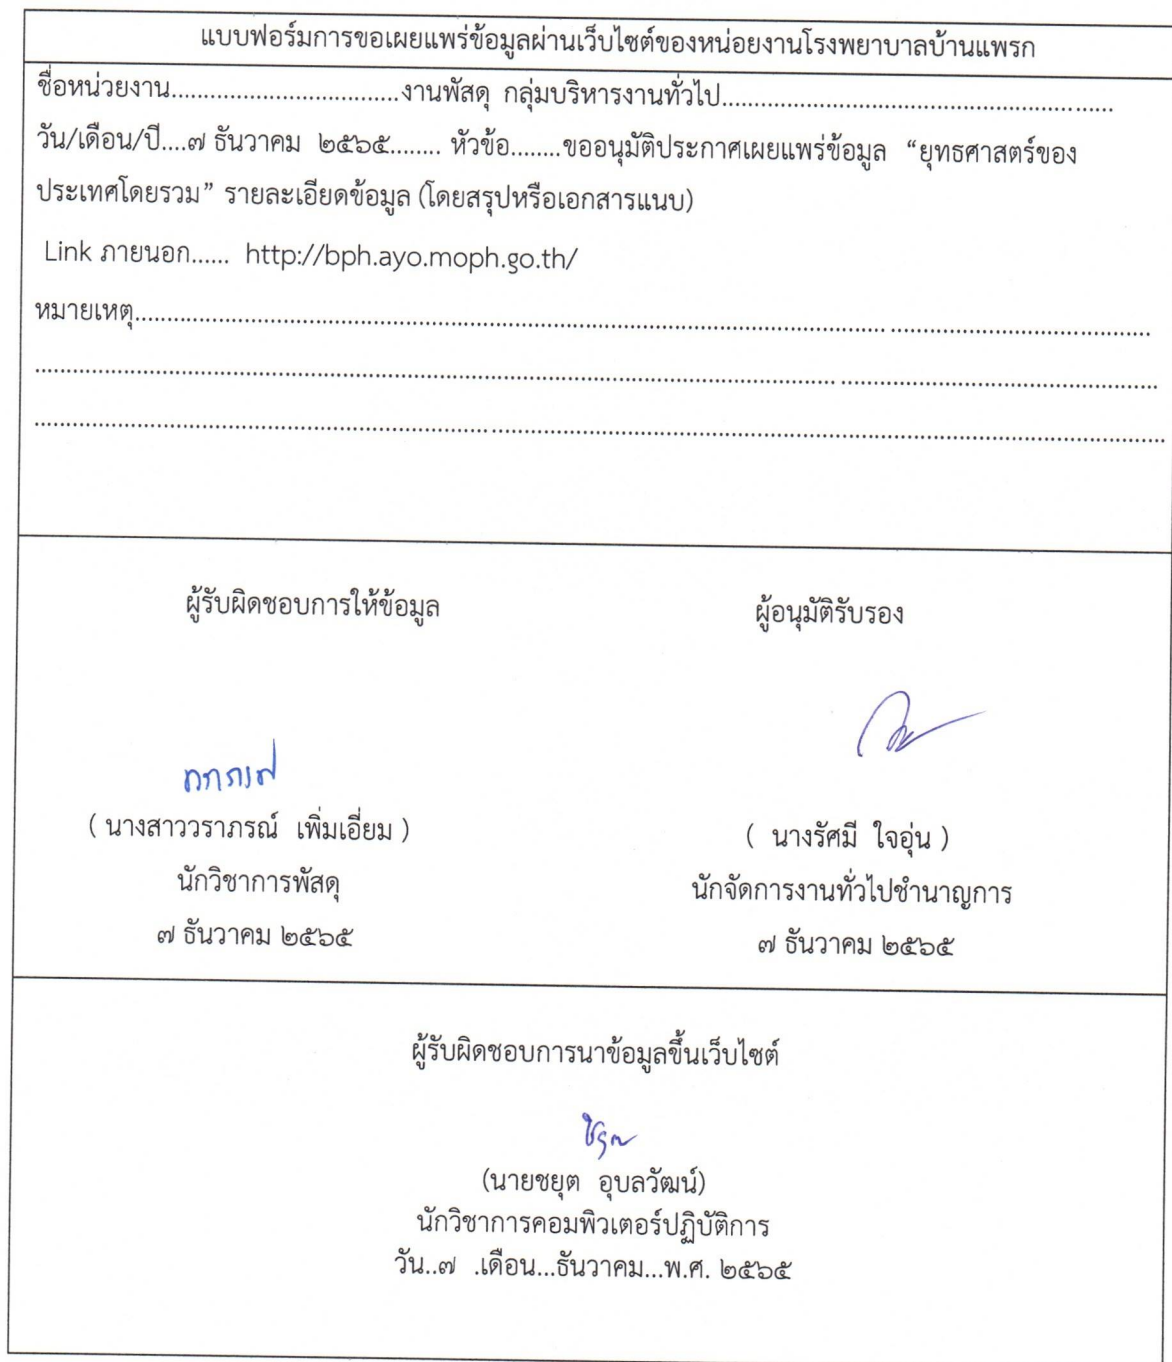 แบบฟอร์มการขอเผยแพร่ข้อมูลผ่านเว็บไซต์ของหน่อยงานโรงพยาบาลบ้านแพรก
ชื่อหน่วยงาน...................................งานพัสดุ กลุ่มบริหารงานทั่วไป............................................................
วัน/เดือน/ปี....๗ ธันวาคม ๒๕๖๕........ หัวข้อ........ขออนุมัติประกาศเผยแพร่ข้อมูล “ยุทธศาสตร์ของ
ประเทศโดยรวม” รายละเอียดข้อมูล (โดยสรุปหรือเอกสารแนบ)
Link ภายนอก...... http://bph.ayo.moph.go.th/
หมายเหตุ............................................................................................................................................
ผู้รับผิดชอบการให้ข้อมูล ผู้อนุมัติรับรอง
( นางสาววราภรณ์ เพิ่มเอี่ยม ) ( นางรัศมี ใจอุ่น )
นักวิชาการพัสดุ นักจัดการงานทั่วไปชำนาญการ
๗ ธันวาคม ๒๕๖๕ ๗ ธันวาคม ๒๕๖๕
ผู้รับผิดชอบการนาข้อมูลขึ้นเว็บไซต์
(นายชยุต อุบลวัฒน์)
นักวิชาการคอมพิวเตอร์ปฏิบัติการ
วัน..๗ .เดือน...ธันวาคม...พ.ศ. ๒๕๖๕